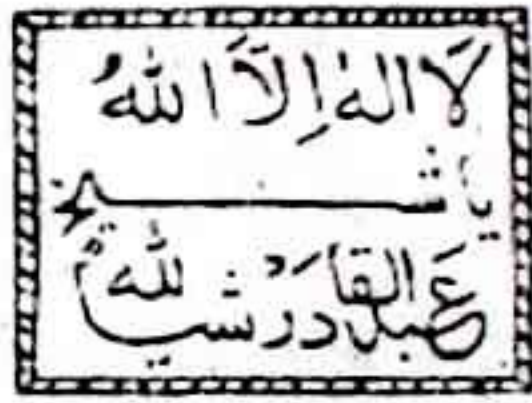 لَا اِلٰهَ اِلَّا اللهُ
يا شيخ
عَبد القادر شيئا لله